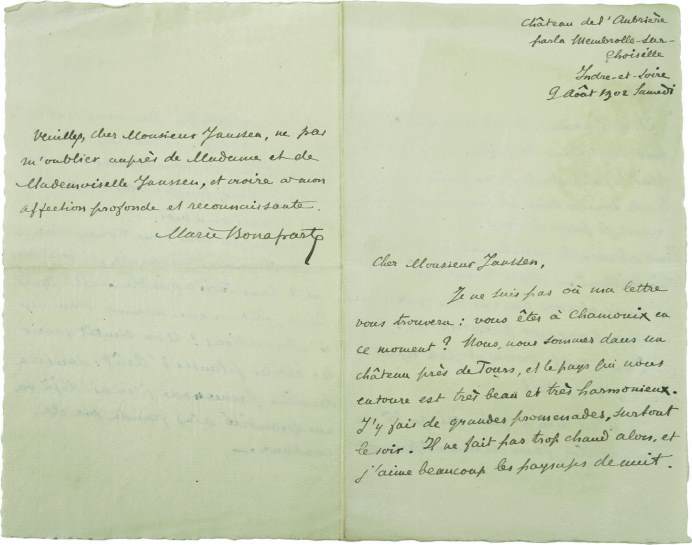 Château de l'Aubrière
par la Membrolle-sur-
Choisille
Indre-et-Loire
9 Août 1902 Samedi
Cher Monsieur Janssen,
Je ne sais pas où ma lettre
vous trouvera : vous êtes à Chamonix en
ce moment ? Nous, nous sommes dans un
château près de Tours, et le pays qui nous
entoure est très beau et très harmonieux.
J'y fais de grandes promenades, surtout
le soir. Il ne fait pas trop chaud alors, et
j'aime beaucoup les paysages de nuit.
Veuillez, cher Monsieur Janssen, ne pas
m'oublier auprès de Madame et de
Mademoiselle Janssen, et croire à mon
affection profonde et reconnaissante.
Marie Bonaparte